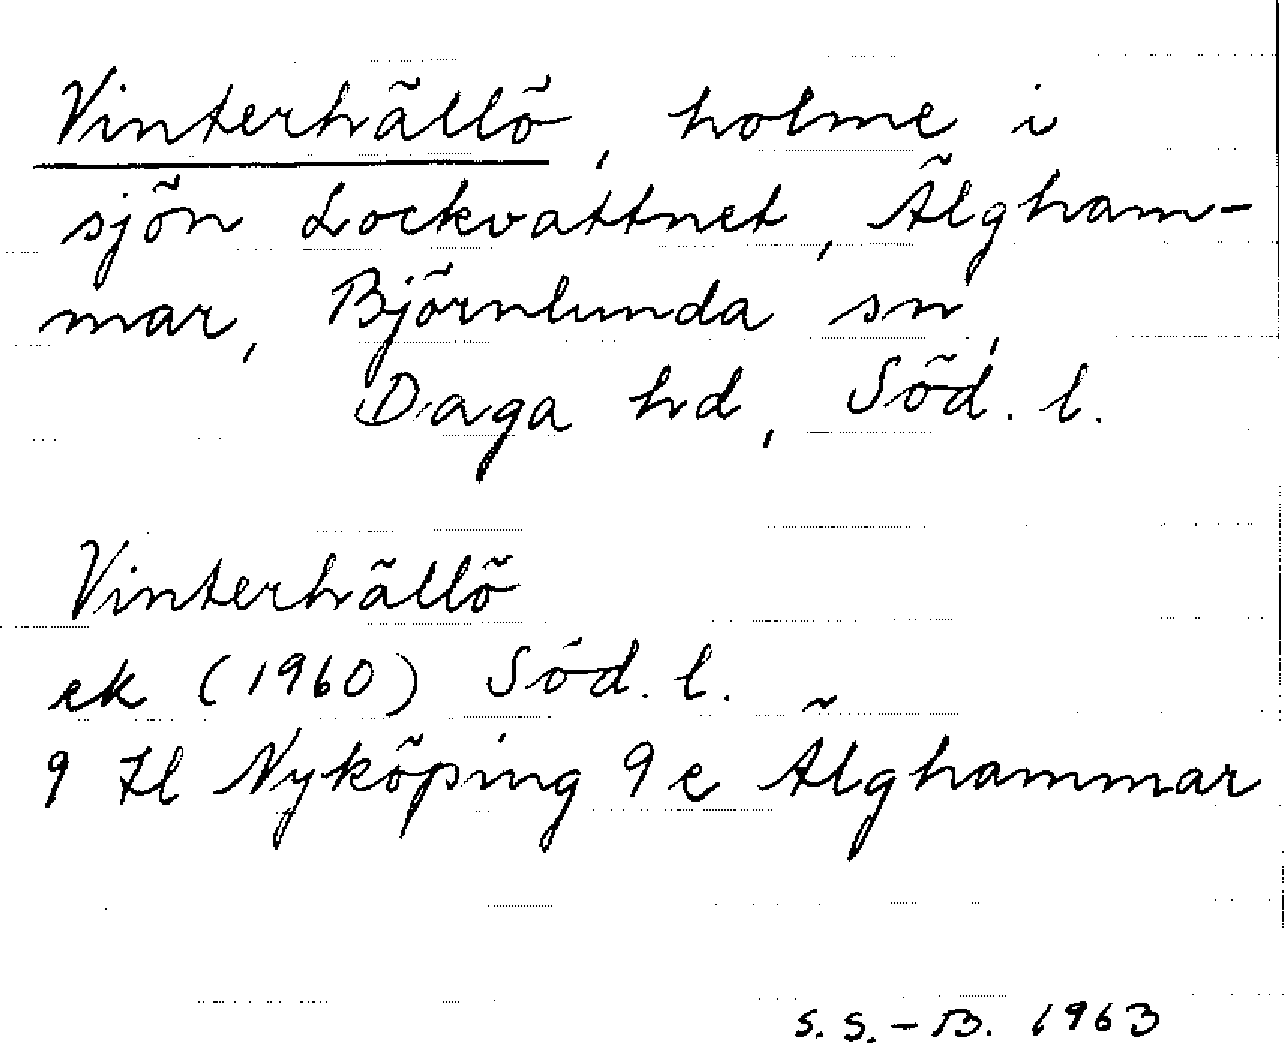 Vinterhällö, holme i
sjön Lockvattnet, Älgham-
mar, Björnlunda sn,
Daga hd, Söd. l.
Vinterhällö
ek (1960) Söd. l.
9 H Nyköping 9 e Älghammar
S. S. - B. 1963